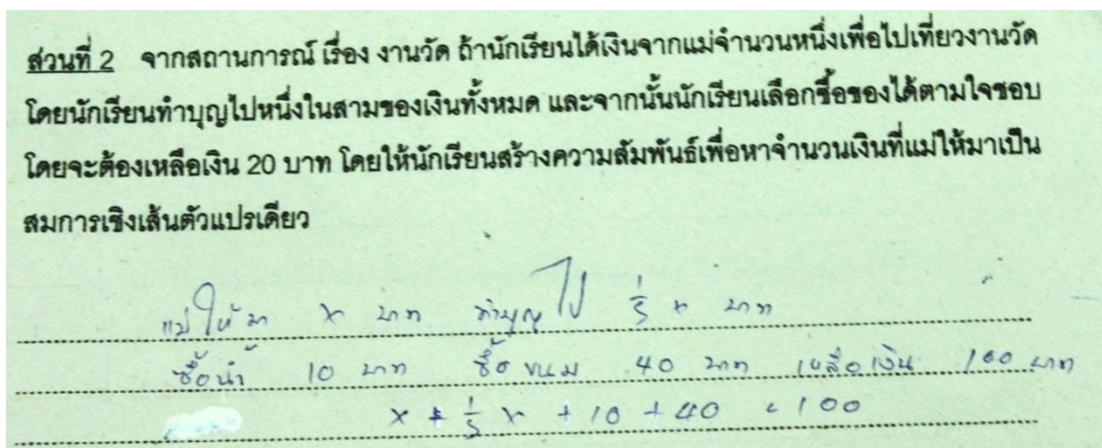 ส่วนที่ 2 จากสถานการณ์ เรื่อง งานวัด ถ้านักเรียนได้เงินจากแม่จำนวนหนึ่งเพื่อไปเที่ยวงานวัด
โดยนักเรียนทำบุญไปหนึ่งในสามของเงินทั้งหมด และจากนั้นนักเรียนเลือกซื้อของได้ตามใจชอบ
โดยจะต้องเหลือเงิน 20 บาท โดยให้นักเรียนสร้างความสัมพันธ์เพื่อหาจำนวนเงินที่แม่ให้มาเป็น
สมการเชิงเส้นตัวแปรเดียว
แม่ให้มา x บาท ทำบุญไป x บาท
ซื้อน้ำ 10 บาท ซื้อขนม 40 บาท เหลือเงิน 100 บาท
x + x + 10 + 40 100